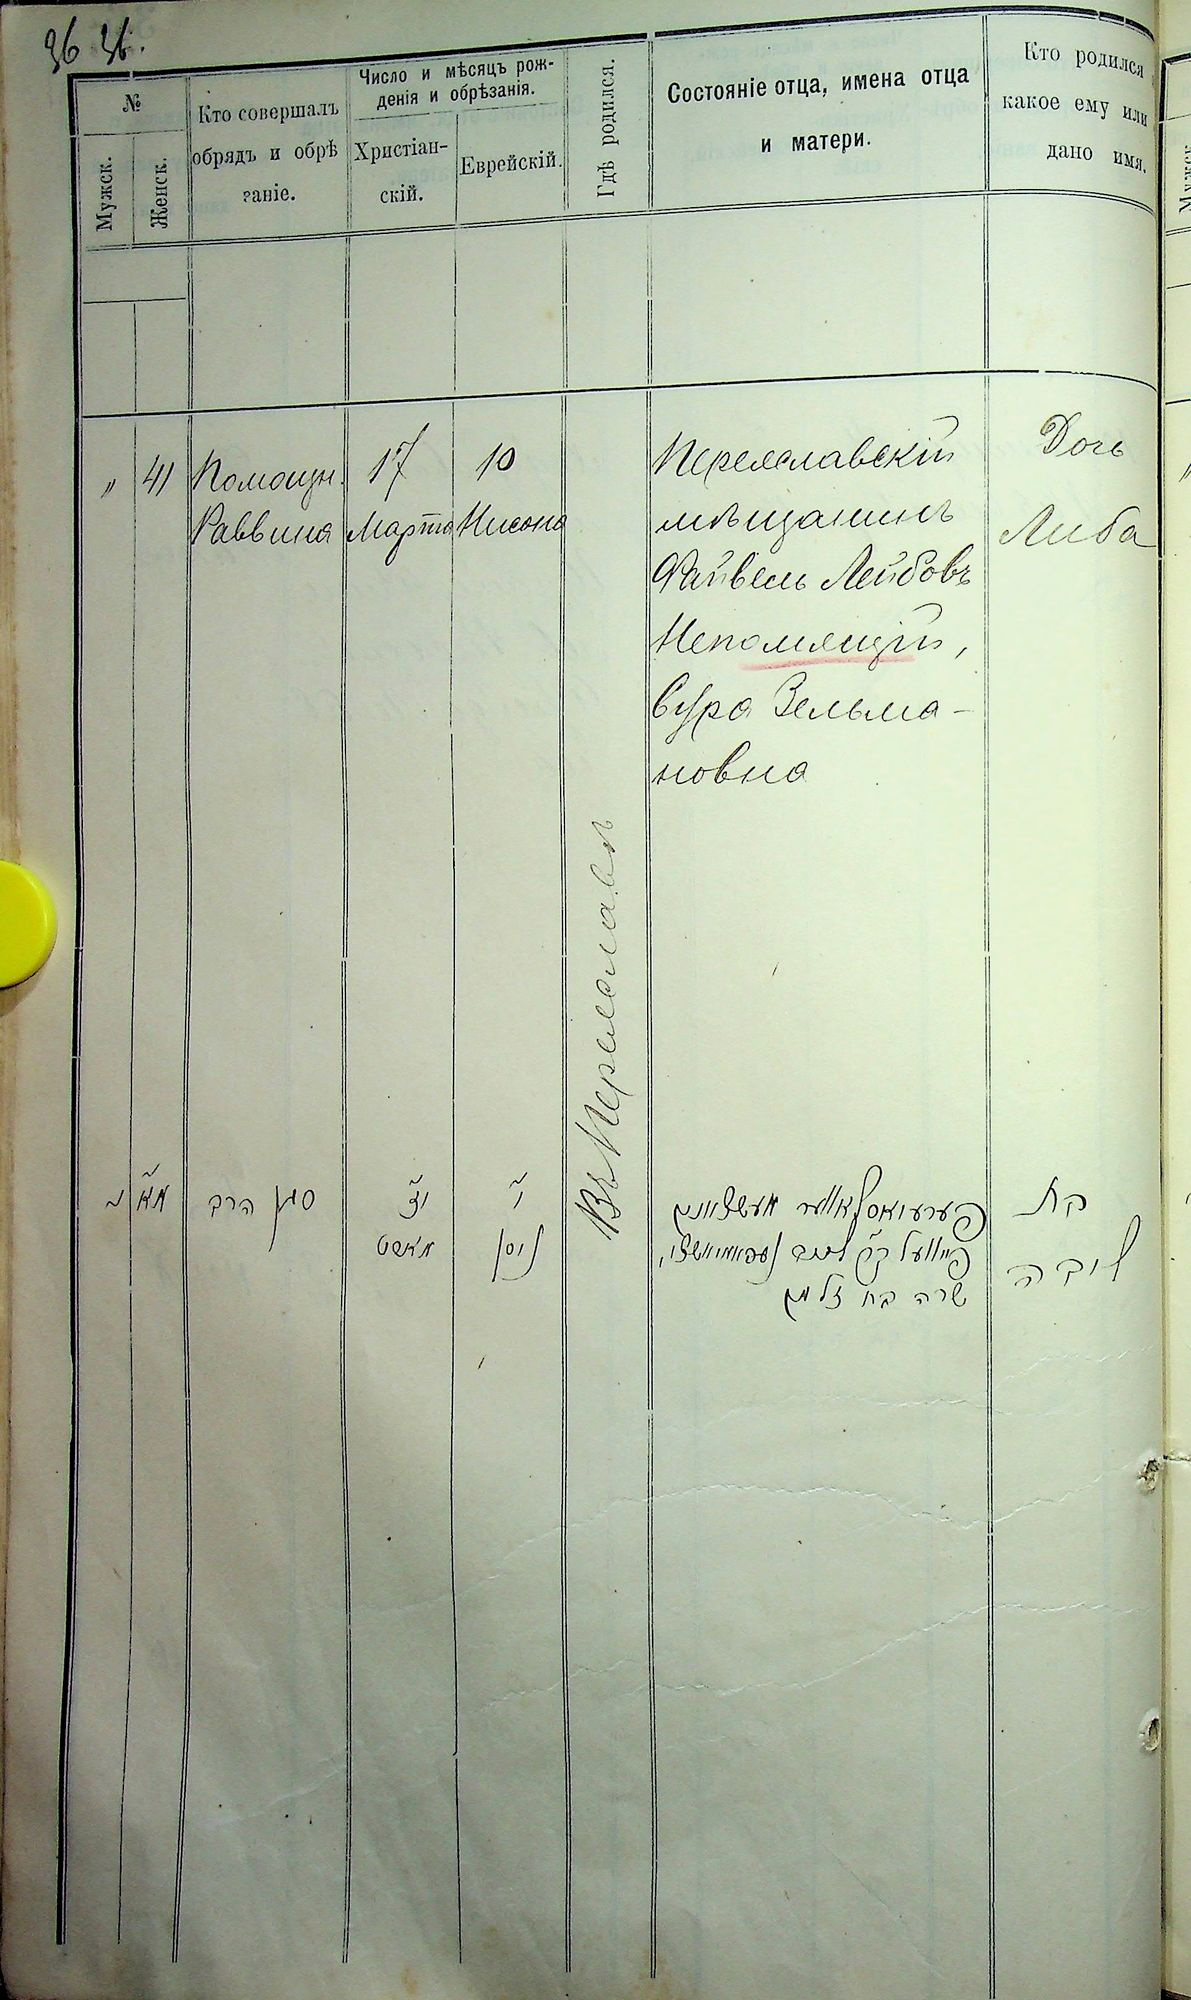 36 36.
№
Мужск.
Женск.
Кто совершалъ
обрядъ и обрѣ
заніе.
Число и мѣсяцъ рож-
денія и обрѣзанія.
Христіан-
скій.
Еврейскій.
Гдѣ родился.
Состояніе отца, имена отца
и матери.
Кто родился
какое ему или
дано имя.
"
41
Помощн.
Раввина
17
Марта
10
Нисона
Въ Переяславлѣ
Переяславскій
мѣщанинъ
Файвель Лейбовъ
Непомящій,
Сура Зельма-
новна
Дочь
Либа
מא
סגן הרב
יז
מארט
י
ניסן
שרה בת זלמן
בת
ליבה